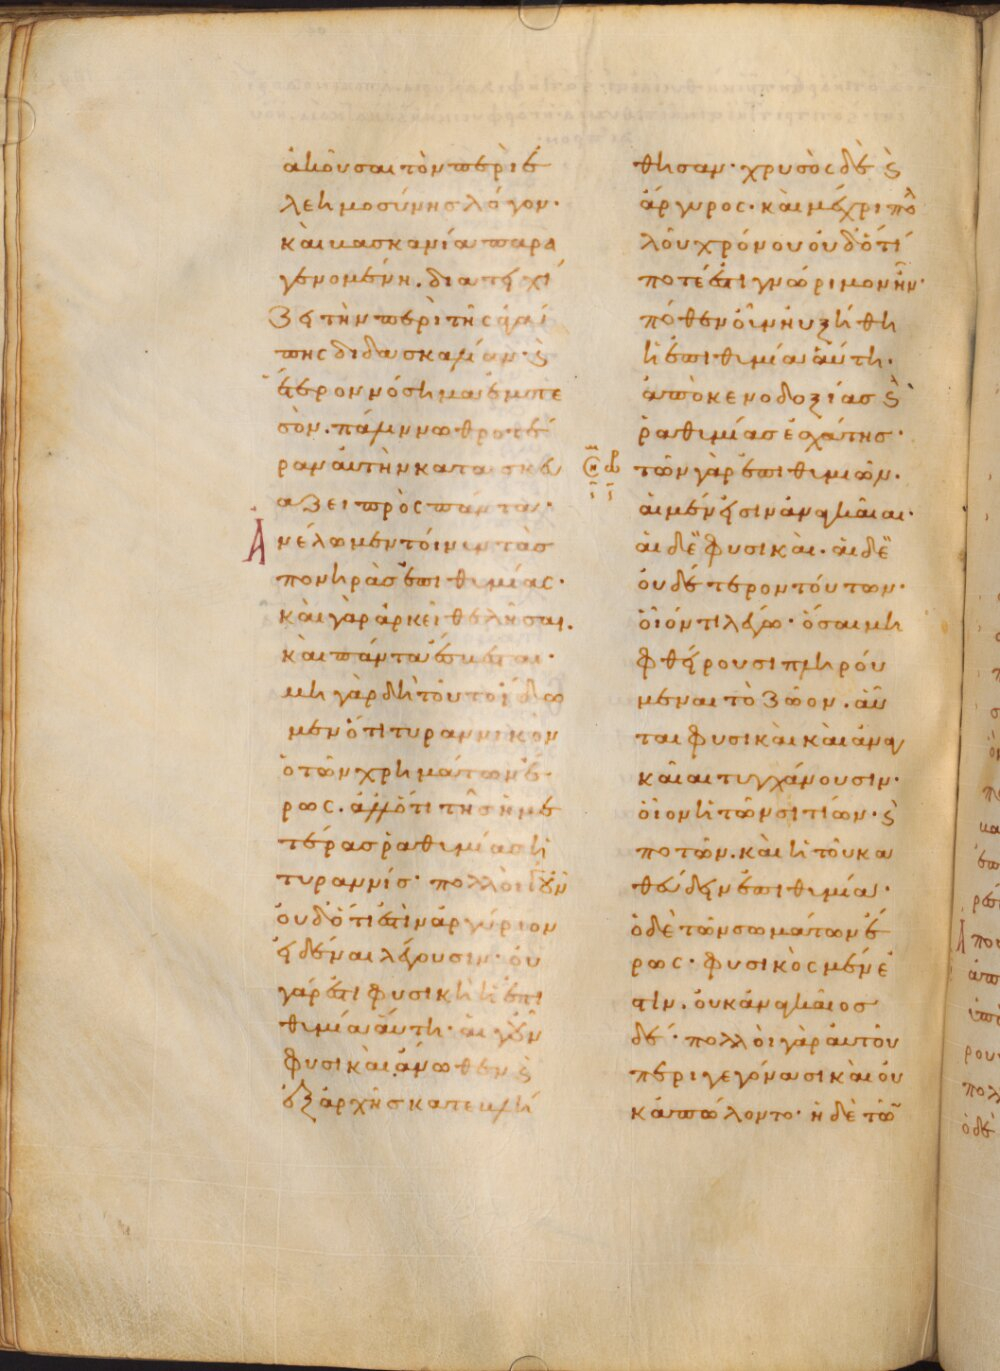 ἀκοῦσαι τὸν περὶ ἐ
λεημοσύνης λόγον·
καὶ βασκανία παρα
γενομένη, διατειχί
ζει τὴν περὶ τῆς ἀγά
πης διδασκαλίαν· καὶ
ἕτερον νόσημα ἐμπε
σὸν, πάλιν νωθροτέ
ραν αὐτὴν κατασκευ
άζει πρὸς πάντα·
Ἀνέλωμεν τοίνυν τὰς
πονηρὰς ἐπιθυμίας·
καὶ γὰρ ἀρκεῖ θελῆσαι,
καὶ πάντα ἔσβεσται·
μὴ γὰρ δὴ τοῦτο ἴδω
μεν ὅτι τυραννικὸν
ὁ τῶν χρημάτων ἔ
ρως, ἀλλ' ὅτι τῆς ἡμε
τέρας ῥαθυμίας ἡ
τυραννίς· πολλοὶ γοῦν
οὐδ' ὅτι ἐστὶν ἀργύριον
εἰδέναι λέγουσιν· οὐ
γάρ ἐστι φυσικὴ ἡ ἐπι
θυμία αὕτη· αἱ γοῦν
φυσικαὶ ἄνωθεν καὶ
ἐξ ἀρχῆς κατεβλή
θησαν· χρυσὸς δὲ καὶ
ἄργυρος· καὶ μέχρι πολ
λοῦ χρόνου οὐδ' ὅτί
ποτέ ἐστι γνώριμον ἦν·
πόθεν οὖν ηὐξήθη
ἡ ἐπιθυμία αὕτη·
ἀπὸ κενοδοξίας καὶ
ῥαθυμίας ἐσχάτης·
τῶν γὰρ ἐπιθυμιῶν·
αἱ μέν εἰσιν ἀναγκαῖαι·
αἱ δὲ φυσικαὶ· αἱ δὲ
οὐδέτερον τούτων·
οἷόν τι λέγω· ὅσαι μὴ
φθείρουσι πληρού
μεναι τὸ ζῶον, αὗ
ται φυσικαὶ καὶ ἀναγ
καῖαι τυγχάνουσιν·
οἷον ἡ τῶν σιτίων· καὶ
ποτῶν, καὶ ἡ τοῦ κα
θεύδειν ἐπιθυμία·
ὁ δὲ τῶν σωμάτων ἔ
ρως· φυσικὸς μέν ἐ
στιν, οὐκ ἀναγκαῖος
δέ· πολλοὶ γὰρ αὐτοῦ
περιγεγόνασι καὶ οὐ
κ ἀπώλοντο· ἡ δὲ τῶν